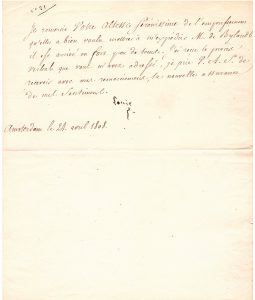 Je remercie Votre Altesse Sérénissime de l'empressement
qu'elle a bien voulu mettre à m'expédier M. de Bylandt
il est arrivé ici fort peu de tems. J'ai reçu le procès
verbal que vous m'avez adressé. je prie V. A. S. de
recevoir avec mes remerciemens, les nouvelles assurances
de mes sentimens.
Louis
Amsterdam le 24. avril 1808.